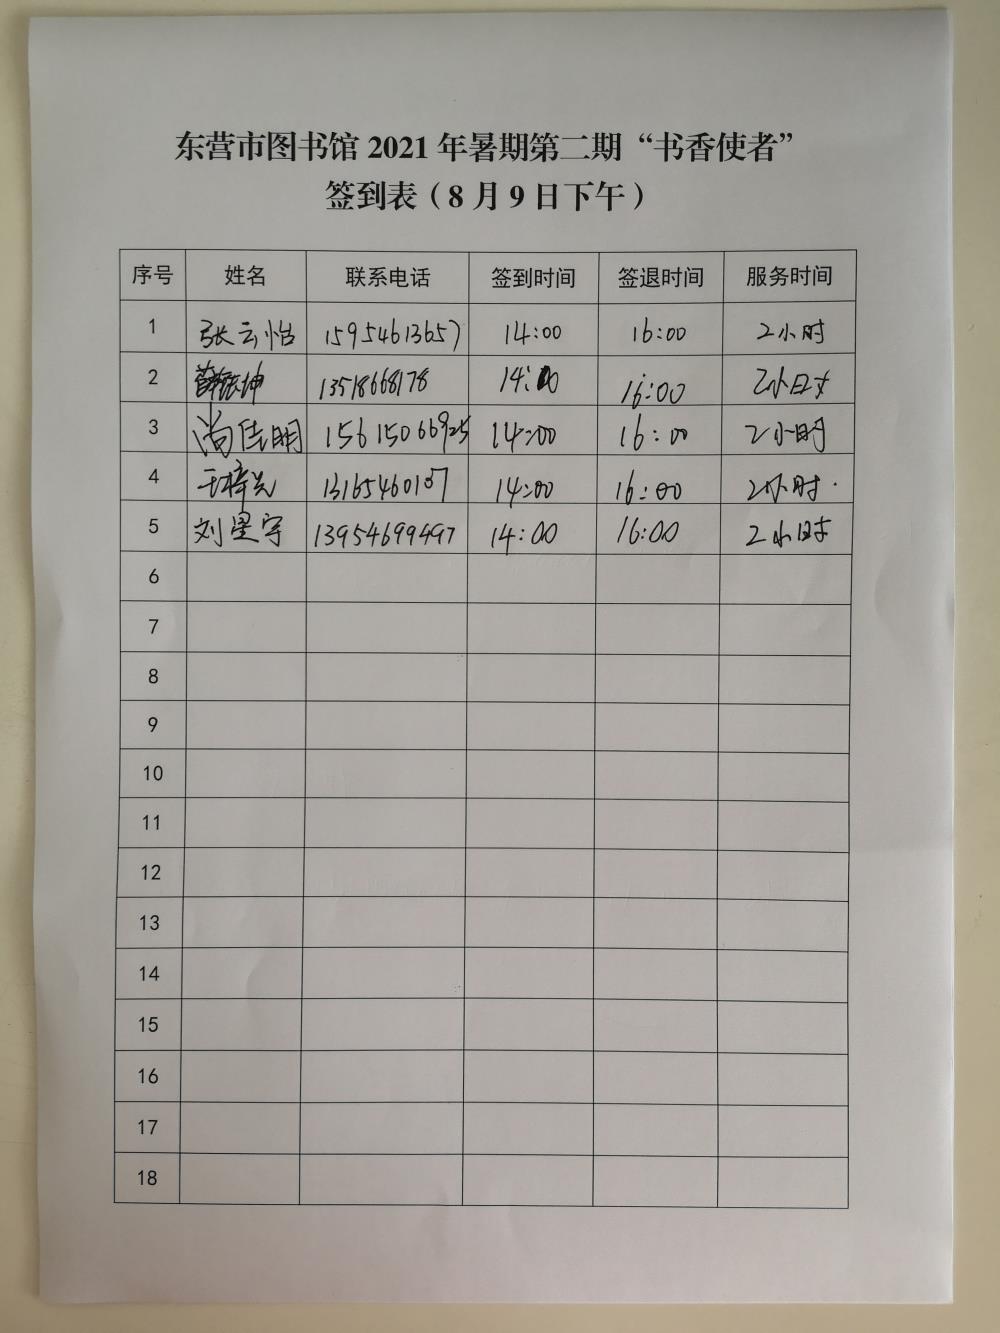 东营市图书馆 2021 年暑期第二期“书香使者”
签到表（8 月 9 日下午）
序号 姓名 联系电话 签到时间 签退时间 服务时间
1 张云怡 15954613657 14:00 16:00 2小时
2 13518668178 14:00 16:00 2小时
3 尚佳明 15615066925 14:00 16:00 2小时
4 于梓芫 13165460137 14:00 16:00 2小时.
5 刘星宇 13954699497 14:00 16:00 2小时
6
7
8
9
10
11
12
13
14
15
16
17
18